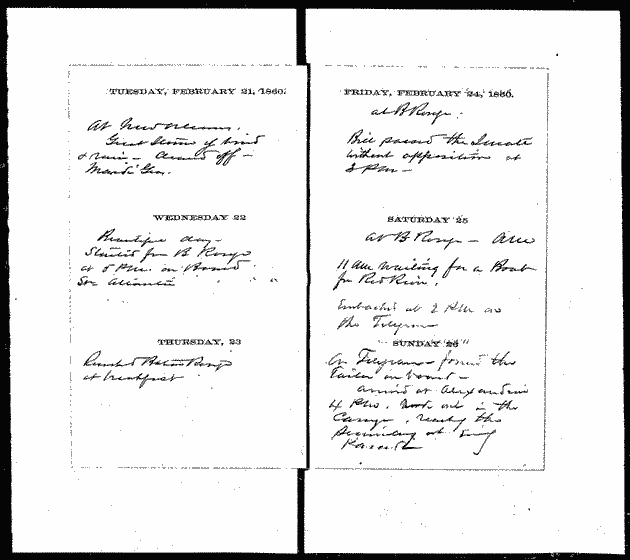 TUESDAY, FEBRUARY 21, 1860.
At New Orleans.
Great Storm of wind
& rain - cleared off -
Mardi Gras.
WEDNESDAY 22
Beautiful day -
Started for B Rouge
at 5 P.M. on Board
THURSDAY, 23
Reached Baton Rouge
at breakfast
FRIDAY, FEBRUARY 24, 1860.
at B Rouge.
Bill passed the Senate
without opposition at
2 PM -
SATURDAY 25
at B Rouge -
11 AM waiting for a Boat
for Red River.
Embarked at 2 P.M. on
the Telegram
SUNDAY 26
On Telegram - found the
Tailor on board -
arrived at Alexandria
4 P.M. out in the
the
Seminary at